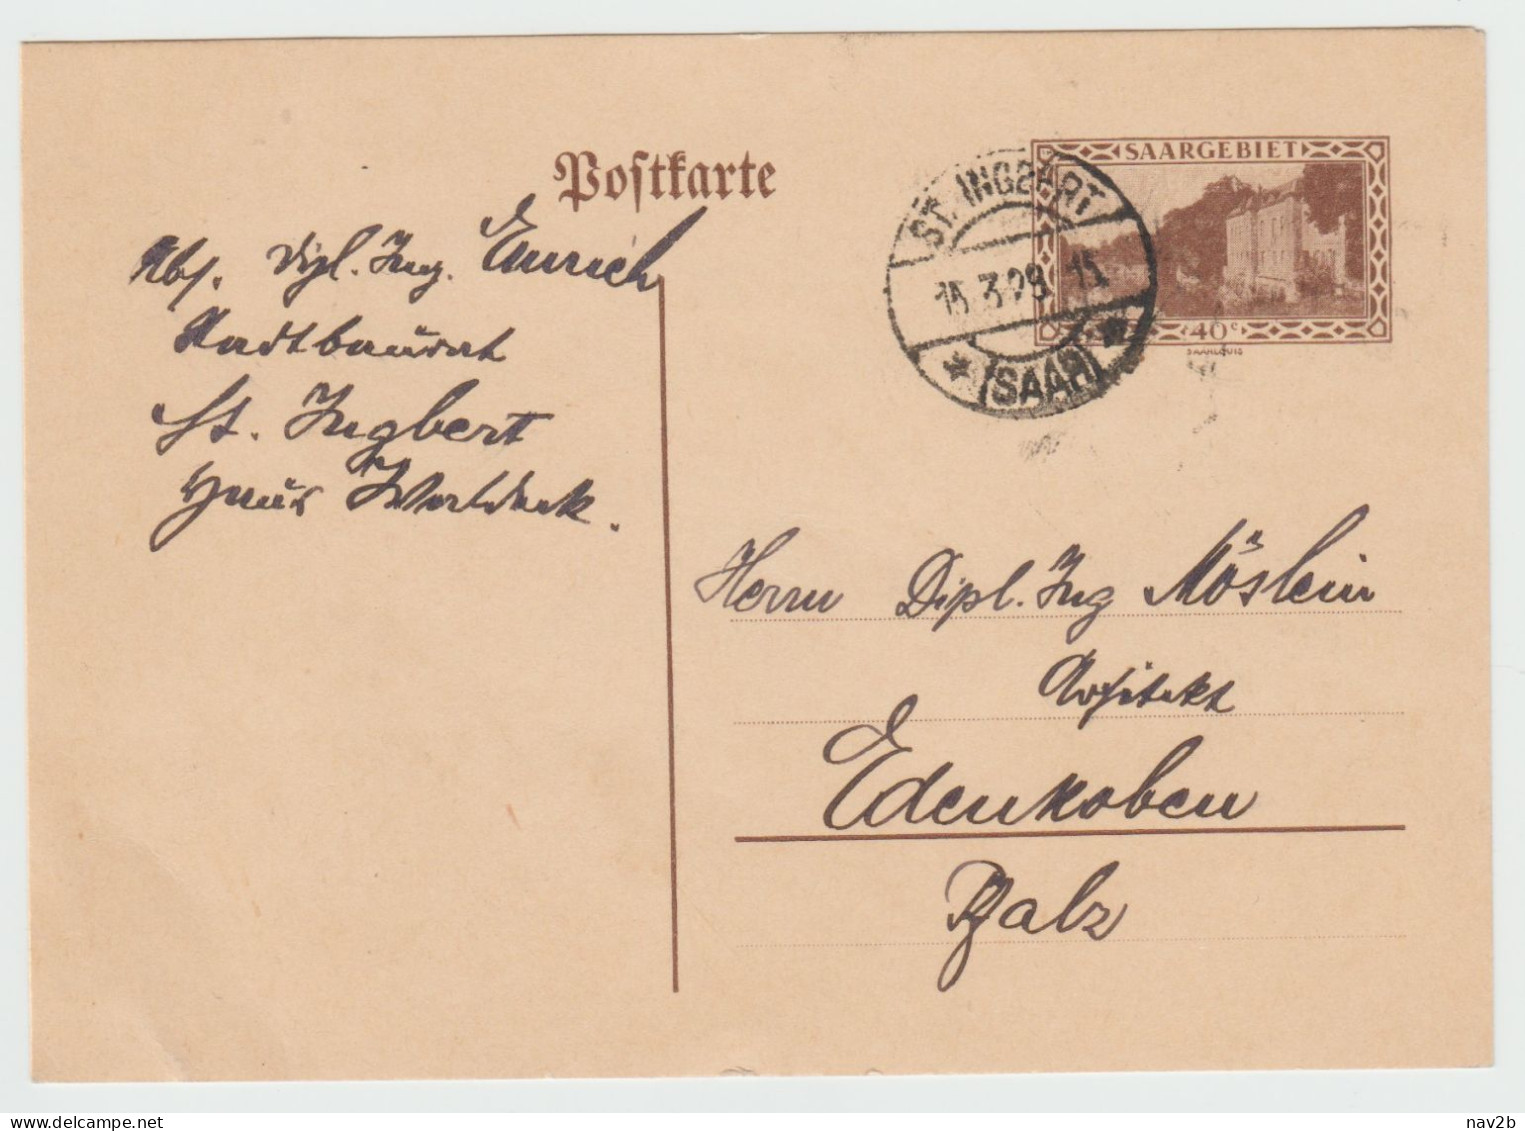 Postkarte
SAARGEBIET
40 c
SAARLOUIS
ST. INGBERT
15.3.29. 15
(SAAR)
Abs. Dipl. Ing. Emrich
Stadtbaurat
St. Ingbert
Haus Waldeck.
Herrn Dipl. Ing Möslein
Architekt
Edenkoben
Pfalz
nav2b